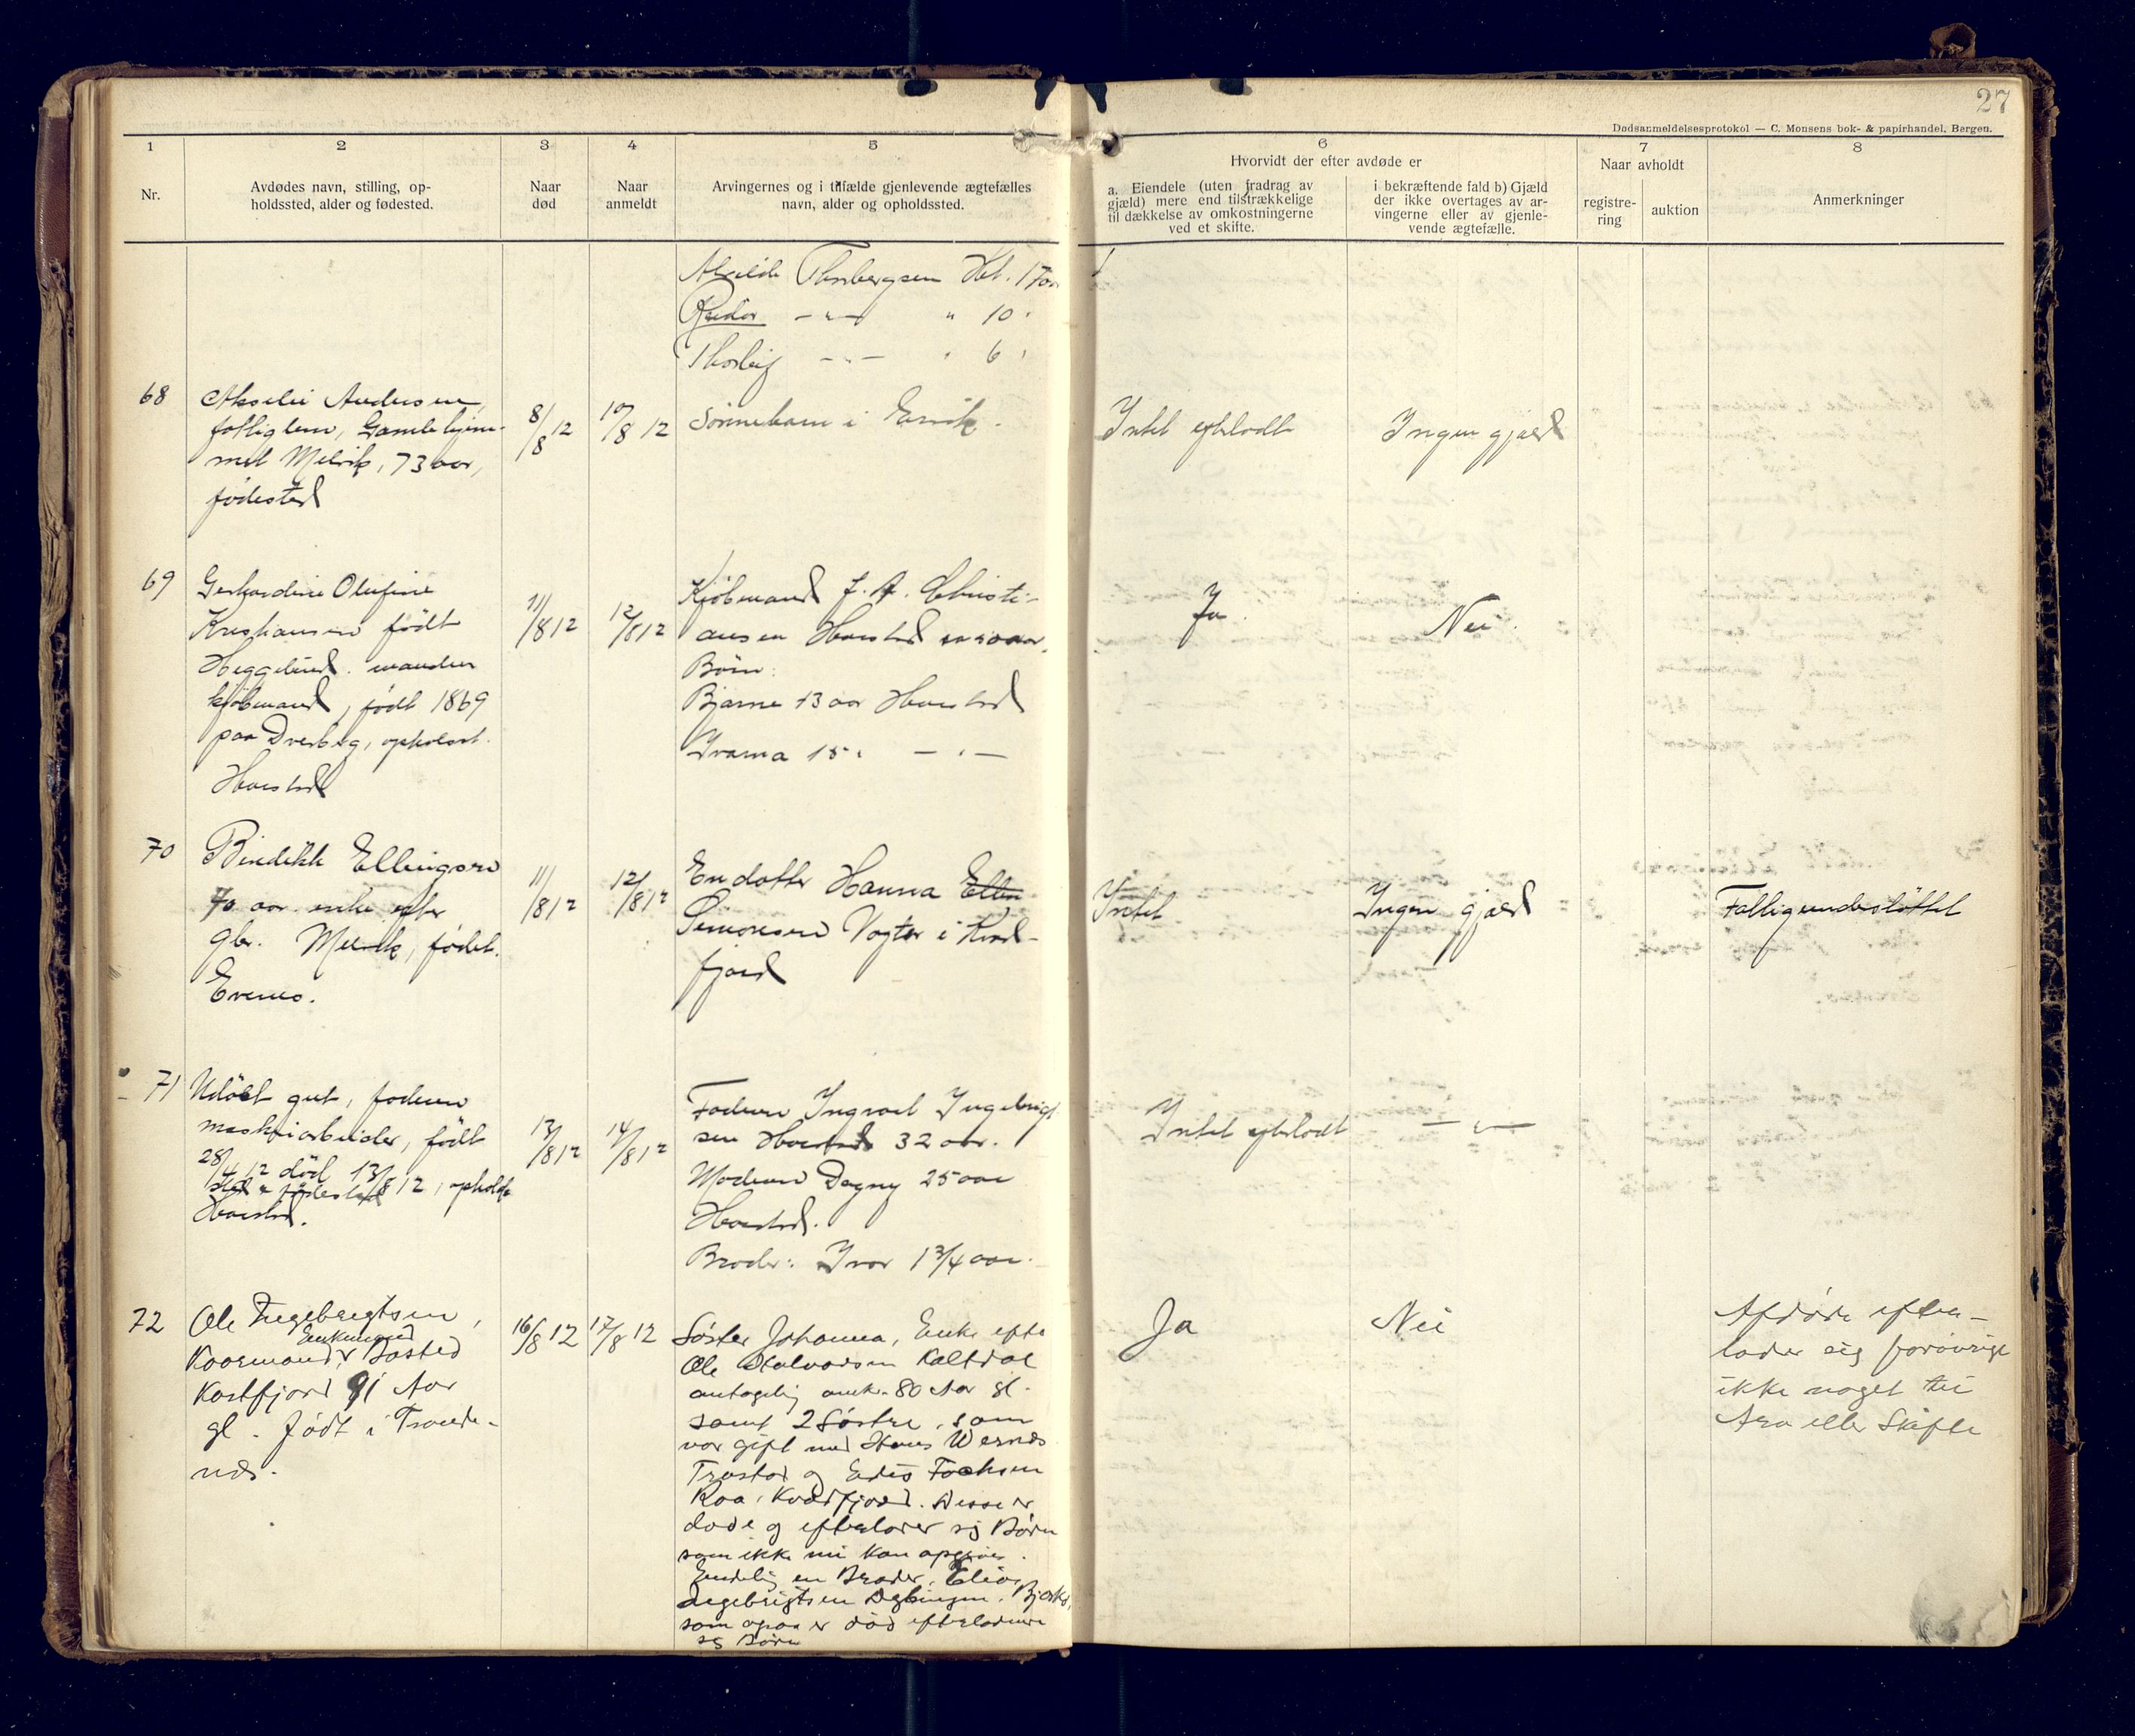 27
Dødsanmeldelsesprotokol — C. Monsens bok- & papirhandel, Bergen.
1
2
3
4
5
6
7
8
Nr.
Avdødes navn, stilling, op-
holdssted, alder og fødested.
Naar
død
Naar
anmeldt
Arvingernes og i tilfælde gjenlevende ægtefælles
navn, alder og opholdssted.
Hvorvidt der efter avdøde er
a. Eiendele (uten fradrag av
gjæld) mere end tilstrækkelige
til dækkelse av omkostningerne
ved et skifte.
i bekræftende fald b) Gjæld
der ikke overtages av ar-
vingerne eller av gjenle-
vende ægtefælle.
Naar avholdt
registre-
ring
auktion
Anmerkninger
Thorbergsen 17 aar
Reidar — " — " 10 "
Thorleif — " — " 6 "
68
Andersen
fattiglem, Gamlehjem-
met Melvik, 73 aar,
fødested
8/8 12
10/8 12
Sønnebarn i
Intet efterladt
Ingen gjæld
69
Gerhardine Olufine
Kristiansen født
Heggelund. manden
kjøbmand, født 1869
paa Dverberg, opholdst.
Harstad
11/8 12
12/8 12
Kjøbmand J. A. Christi-
ansen Harstad
Børn:
Bjarne 13 aar Harstad
Ivarna 15 " — " —
Ja.
Nei.
70
Bendikte Ellingsen
70 aar enke efter
gbr. Melvik, fødest.
Evenes.
11/8 12
12/8 12
En datter Hanna Ellen
Simonsen Vogter i Kvæd-
fjord
Intet
Ingen gjæld
Fattigunderstøttet
71
Udøbt gut, faderen
maskinarbeider, født
28/4 12 død 13/8 12, opholds
sted & fødested
Harstad.
13/8 12
14/8 12
Faderen Ingvart Ingebrigt
sen Harstad 32 aar.
Moderen Dagny 25 aar
Harstad.
Broder: Ivar 1 3/4 aar.
Intet efterladt
— " —
72
Ole Ingebrigtsen,
Enkemand
Kaarmand, Bosted
Kastfjord 91 Aar
gl. født i Tronde-
næs.
16/8 12
17/8 12
Søster Johanna, Enke efter
Ole Halvorsen Kaltdal
antagelig omkr. 80 Aar gl.
samt 2 Søstre, som
var gift med Hans
og
Kvædfjord. Disse er
døde og efterlader sig Børn
som ikke nu kan opgives.
Endelig en Broder, Elias
Ingebrigtsen
som ogsaa er død efterladende
sig Børn
Ja
Nei
Afdøde efter-
lader sig forøvrigt
ikke noget til
Arv eller Skifte